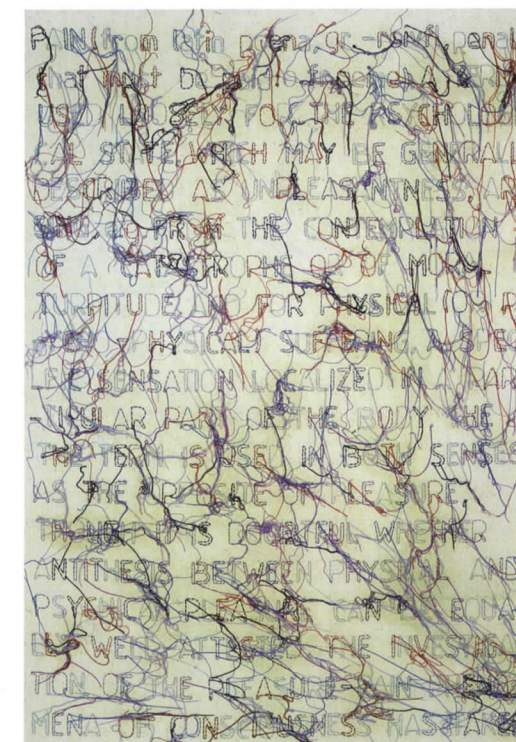 PAIN (from Latin poena, gr
that must be
USED LOOSELY FOR THE PSYCHOLO
CAL STATE, WHICH MAY BE GENERALL
DESCRIBED AS UNPLEASANTNESS AR
THE CONTEMPLATION
OF A CATASTROPHE OR OF MORAL
TURPITUDE, AND FOR PHYSICAL (OR
PHYSICAL) SUFFERING, A SPEC
SENSATION LOCALIZED IN A PAR
TICULAR PART OF THE BODY. THE
THE TERM IS USED IN BOTH SENSES
AS THE OPPOSITE OF PLEASURE
THOUGH IT IS DOUBTFUL WHETHER
ANTITHESIS BETWEEN PHYSICAL AND
PSYCHICAL PLEA CAN BE EQUA
LLY WELL ATTESTED. THE INVESTIGA
TION OF THE PLEASURE-PAIN PHENO
MENA OF CONSCIOUSNESS HAS